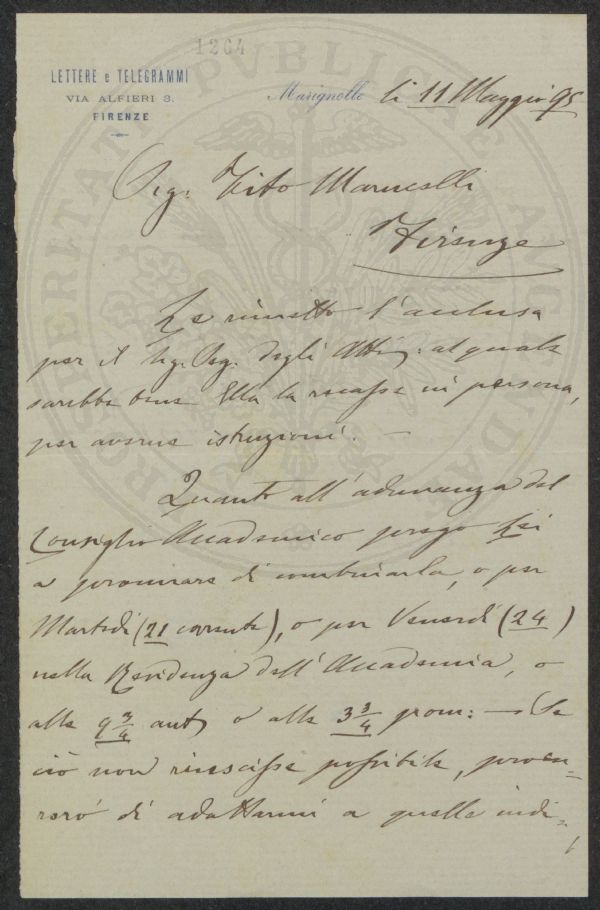 1264
LETTERE e TELEGRAMMI
VIA ALFIERI 3.
FIRENZE
Marignolle li 11 Maggio 95
Sig: Tito Marucelli
Firenze
Le rimetto l'acclusa
per il Sig. Seg. degli Atti, al quale
sarebbe bene Ella la recasse in persona,
per averne istruzioni. —
Quanto all'adunanza del
Consiglio Accademico prego Lei
a procurare di combinarla, o per
Martedì (21 corrente), o per Venerdì (24)
nella Residenza dell'Accademia, o
alle 9 3/4 ant, o alle 3 3/4 pom: — Se
ciò non riuscisse possibile, procu=
rerò di adattarmi a quelle indi=
PROSPERITATI PUBLICAE AUGENDAE